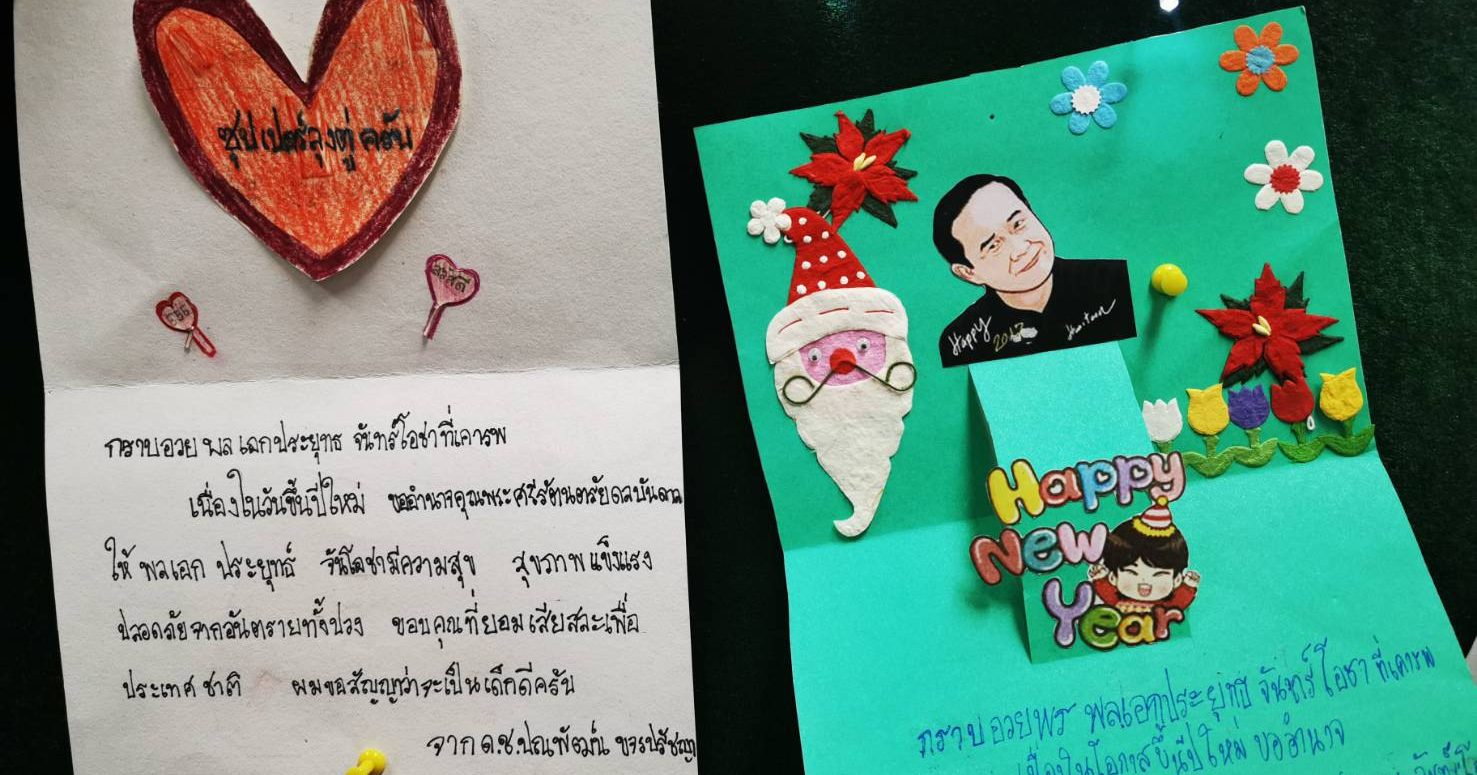 ซุปเปอร์ลุงตู่ครับ
สวัสดี
กราบอวย พลเอกประยุทธ จันทร์โอชาที่เคารพ
เนื่องในวันขึ้นปีใหม่ ขออำนาจคุณพระศรีรัตนตรัยดลบันดาล
ให้ พลเอก ประยุทธ์ จันโอชามีความสุข สุขภาพแข็งแรง
ปลอดภัยจากอันตรายทั้งปวง ขอบคุณที่ยอมเสียสละเพื่อ
ประเทศชาติ ผมขอสัญญาว่าจะเป็นเด็กดีครับ
จาก ด.ช.ปณพัฒน์
Happy
Happy
New
Year
กราบอวยพร พลเอกประยุทธ์ จันทร์โอชา ที่เคารพ
เนื่องในโอกาสขึ้นปีใหม่ ขออำนาจ